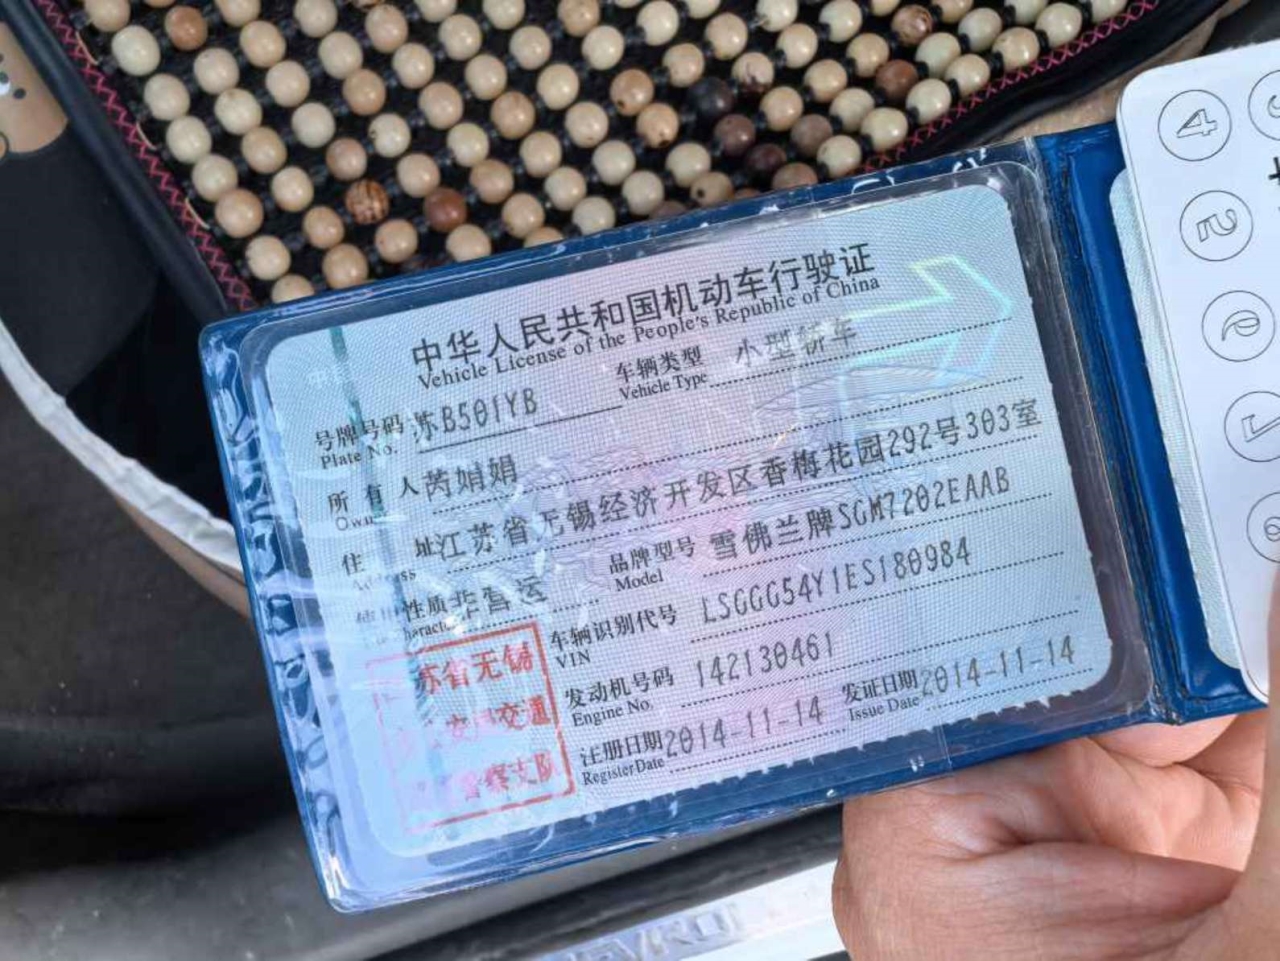 中华人民共和国机动车行驶证
Vehicle License of the People's Republic of China
号牌号码 苏B501YB 车辆类型 小型轿车
Plate No. Vehicle Type
所有人 芮娟娟
Own
住址 江苏省无锡经济开发区香梅花园292号303室
Address
性质 非营运 品牌型号 雪佛兰牌SGM7202EAAB
Character Model
车辆识别代号 LSGGG54Y1ES180984
VIN
发动机号码 142130461
Engine No.
注册日期 2014-11-14 发证日期 2014-11-14
Register Date Issue Date
苏省无锡
安 交通
警察支队
4
5
6
7